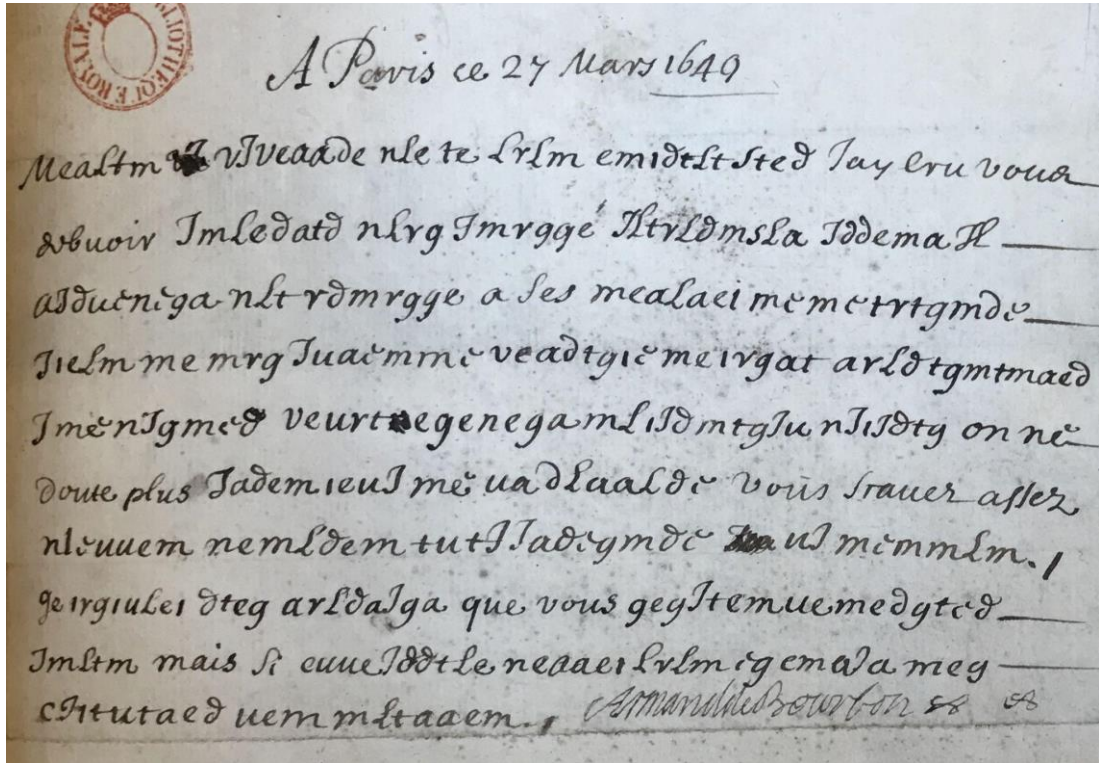 BIBLIOTHEQUE ROYALE
A Paris ce 27 Mars 1649
Mealtm vIveaade nle te lrlm emidtlt sted Jay Cru vous
debuoir Imledatd nlrg Imrggé Iltrldmsla Iddema Il
aIduenega nlt rdmrgge a ses mealaei memetrtgmde
Jielm me mrg Iuaemme veadtgie meirgat arldtgmtmaed
ImenIgmed veurtnegenega mliIdmtgIu nIiIdtg on ne
doute plus Iademieui me uadlaalde vous scauez assez
nleuuem nemldem tutIIadegmde uI memmlm.
geirgiulei dteg arldaIga que vous gegItemuemedgted
Imltm mais si euueIddtle neaaei lrlm egemaIa meg
cItutaed uem mltaaem. Armand de Bourbon